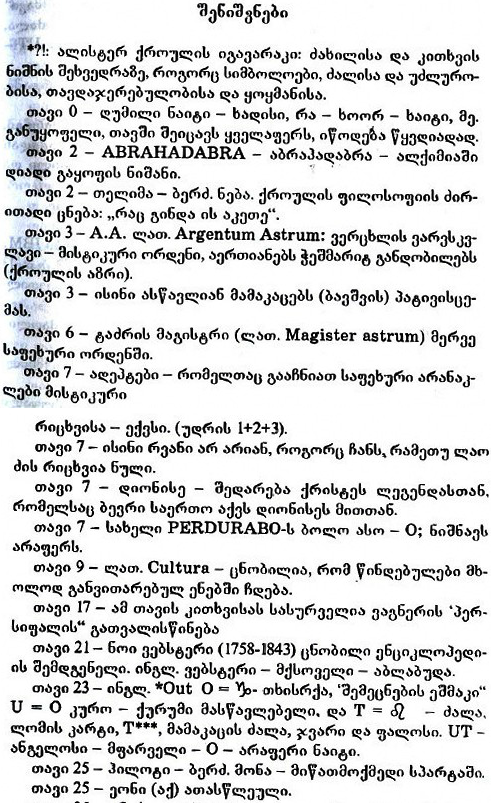 შენიშვნები
*?!: ალისტერ ქროულის იგავარაკი: ძახილისა და კითხვის
ნიშნის შეხვედრაზე, როგორც სიმბოლოები, ძალისა და უძლურო-
ბისა, თავდაჯერებულობისა და ყოყმანისა.
თავი 0 – დუმილი ნაიტი – ხადისი, რა – ხოორ – ხაიტი, მე.
განუყოფელი, თავში შეიცავს ყველაფერს, იწოდება წყვდიადად.
თავი 2 – ABRAHADABRA – აბრაჰადაბრა – ალქიმიაში
დიადი გაყოფის ნიშანი.
თავი 2 – თელიმა – ბერძ. ნება. ქროულის ფილოსოფიის ძირ-
ითადი ცნება: „რაც გინდა ის აკეთე“.
თავი 3 – A.A. ლათ. Argentum Astrum: ვერცხლის ვარესკვ-
ლავი – მისტიკური ორდენი, აერთიანებს ჭეშმარიტ განდობილებს
(ქროულის აზრი).
თავი 3 – ისინი ასწავლიან მამაკაცებს (ბავშვის) პატივისცე-
მას.
თავი 6 – ტაძრის მაგისტრი (ლათ. Magister astrum) მერვე
საფეხური ორდენში.
თავი 7 – ადეპტები – რომელთაც გააჩნიათ საფეხური არანაკ-
ლები მისტიკური
რიცხვისა – ექვსი. (უდრის 1+2+3).
თავი 7 – ისინი რვანი არ არიან, როგორც ჩანს, რამეთუ ლაო
ძის რიცხვია ნული.
თავი 7 – დიონისე – შედარება ქრისტეს ლეგენდასთან,
რომელსაც ბევრი საერთო აქვს დიონისეს მითთან.
თავი 7 – სახელი PERDURABO-ს ბოლო ასო – O; ნიშნავს
არაფერს.
თავი 9 – ლათ. Cultura – ცნობილია, რომ წინდებულები მხ-
ოლოდ განვითარებულ ენებში ჩდება.
თავი 17 – ამ თავის კითხვისას სასურველია ვაგნერის ‘პერ-
სიფალის“ გათვალისწინება
თავი 21 – ნოი ვებსტერი (1758-1843) ცნობილი ენციკლოპედი-
ის შემდგენელი. ინგლ. ვებსტერი – მქსოველი – აბლაბუდა.
თავი 23 – ინგლ. *Out O = ♑- თხისრქა, ‘შემეცნების ეშმაკი“
U = O კურო – ქურუმი მასწავლებელი, და T = ♌ – ძალა,
ლომის კარტი, T***, მამაკაცის ძალა, ჯვარი და ფალოსი. UT -
ანგელოსი – მფარველი – O – არაფერი ნაიტი.
თავი 25 – ჰილოტი – ბერძ. მონა – მიწათმოქმედი სპარტაში.
თავი 25 – ეონი (აქ) ათასწლეული.